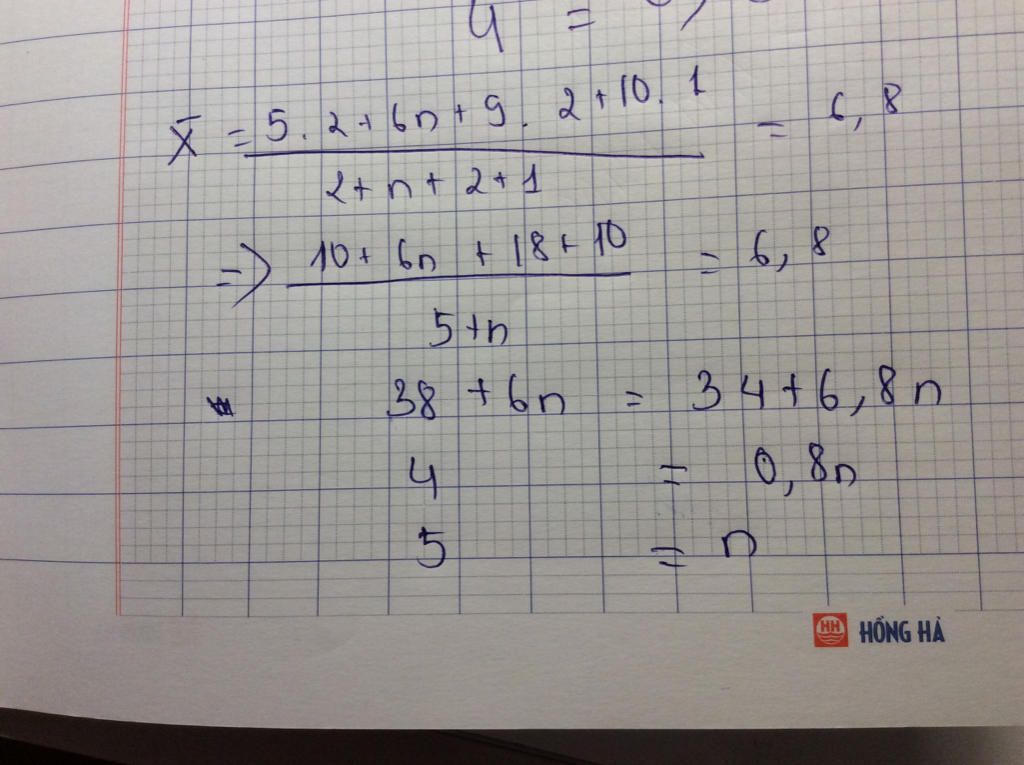 4 =
X̄ = (5 . 2 + 6n + 9 . 2 + 10 . 1) / (2 + n + 2 + 1) = 6,8
=> (10 + 6n + 18 + 10) / (5 + n) = 6,8
38 + 6n = 34 + 6,8n
4 = 0,8n
5 = n
HH HỒNG HÀ